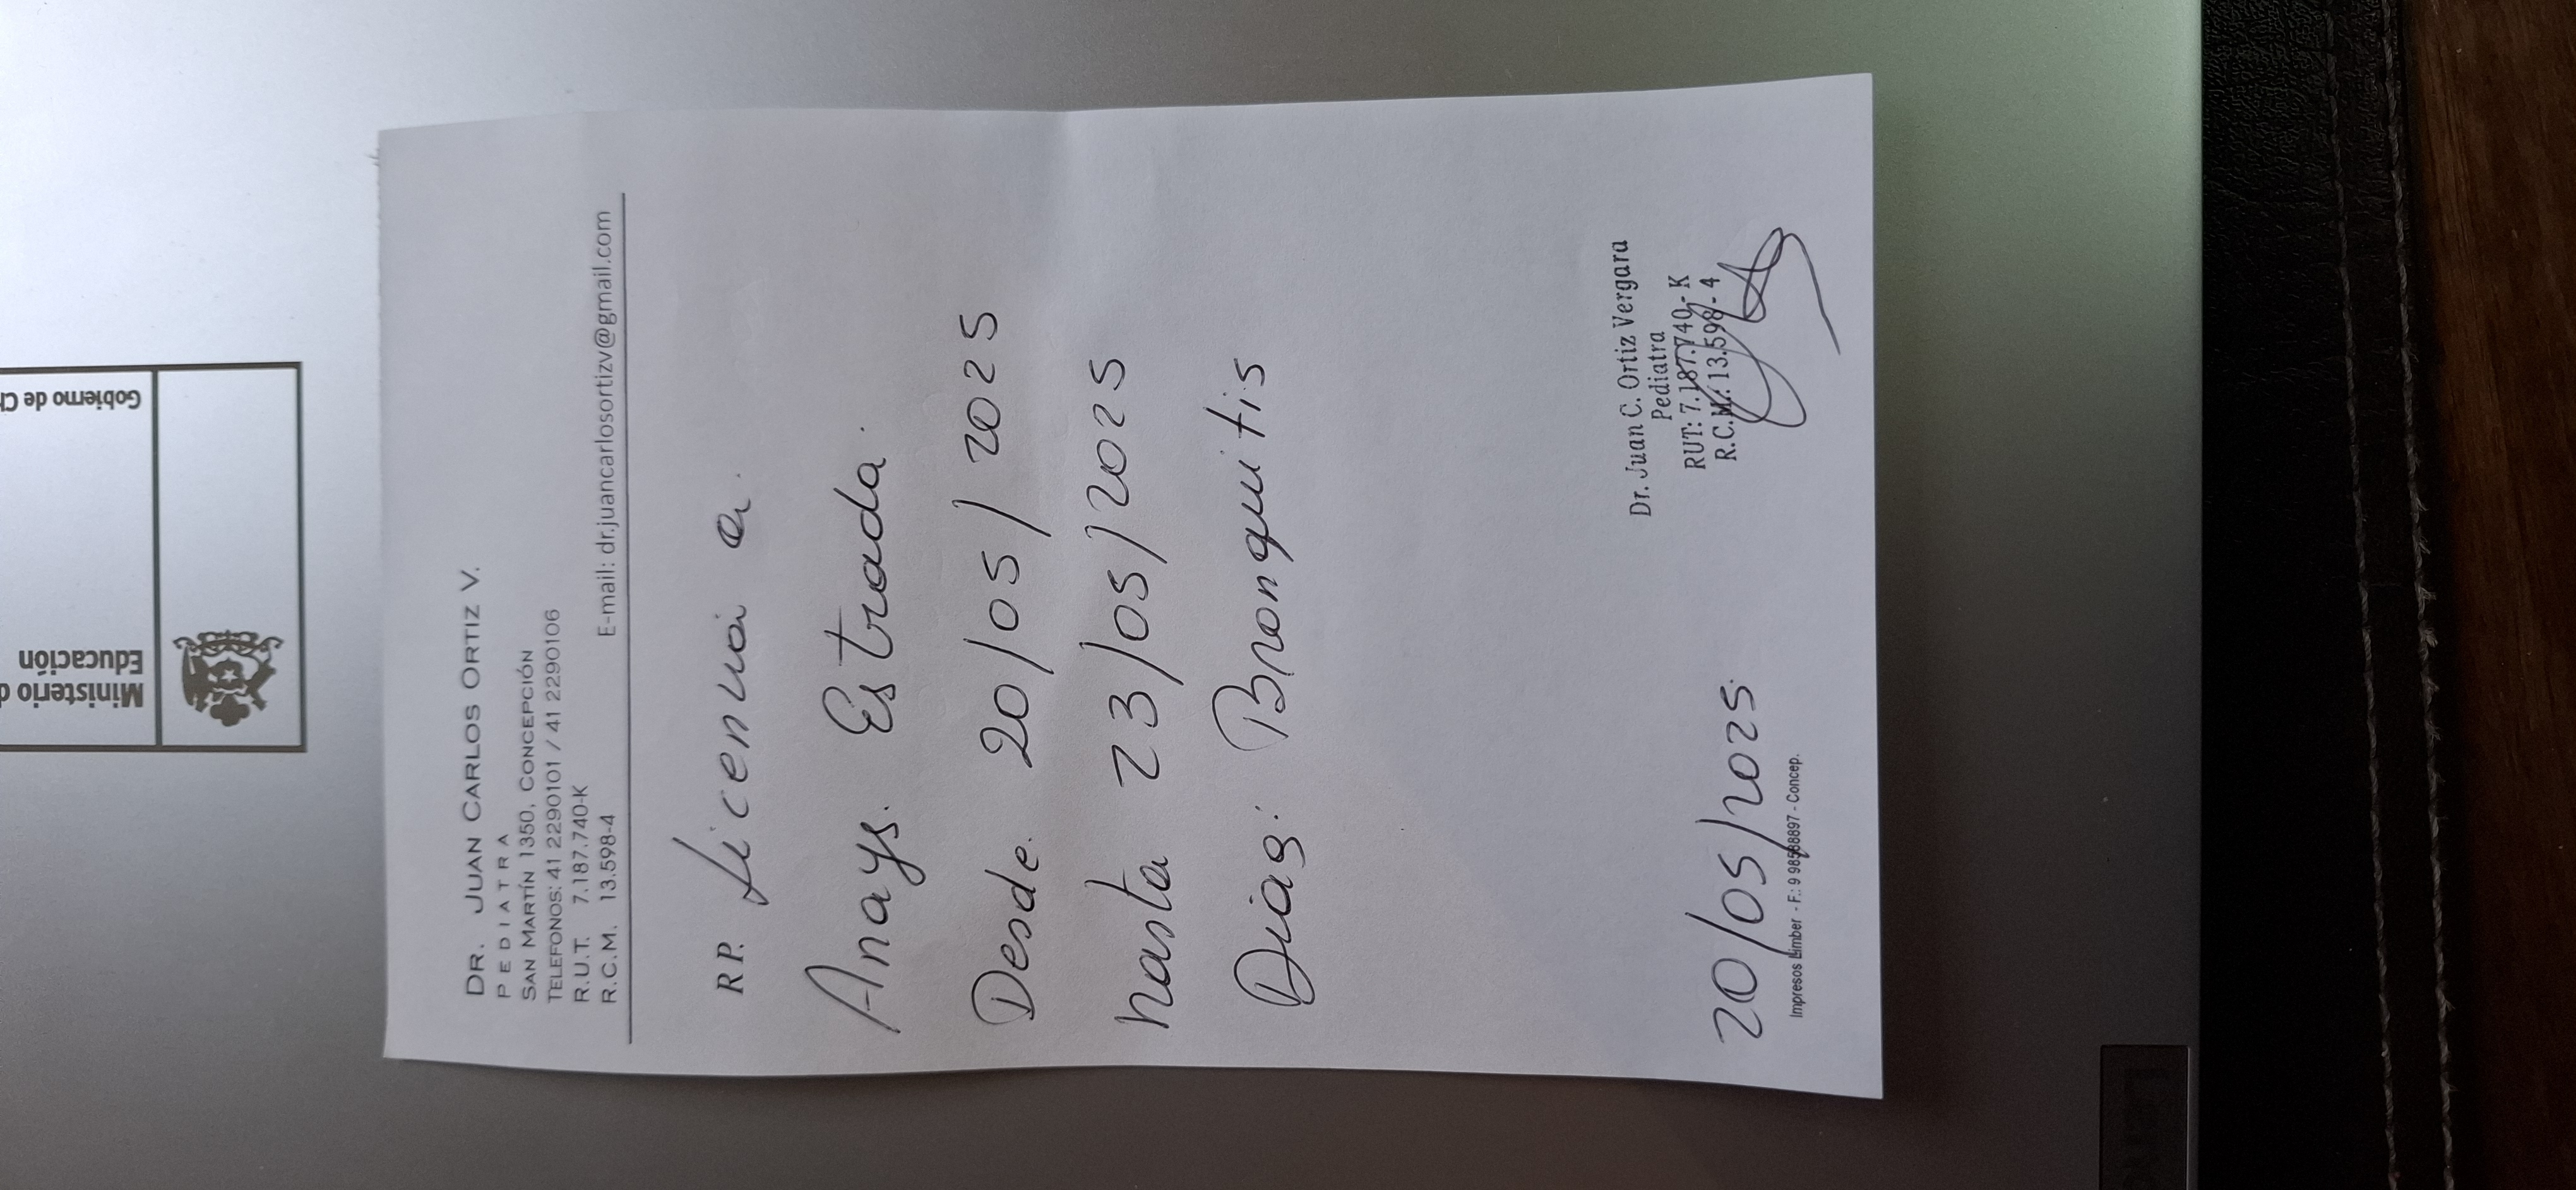 DR. JUAN CARLOS ORTIZ V.
PEDIATRA
SAN MARTÍN 1350, CONCEPCIÓN
TELEFONOS: 41 2290101 / 41 2290106
R.U.T. 7.187.740-K
R.C.M. 13.598-4
E-mail: dr.juancarlosortizv@gmail.com
RP. Licencia a.
Anays. Estrada.
Desde. 20/05/2025
hasta 23/05/2025
Diag: Bronquitis
Dr. Juan C. Ortiz Vergara
Pediatra
RUT: 7.187.740-K
R.C.M.: 13.598-4
20/05/2025.
Impresos Limber - F.: 9 98588897 - Concep.
Ministerio d
Educación
Gobierno de Ch